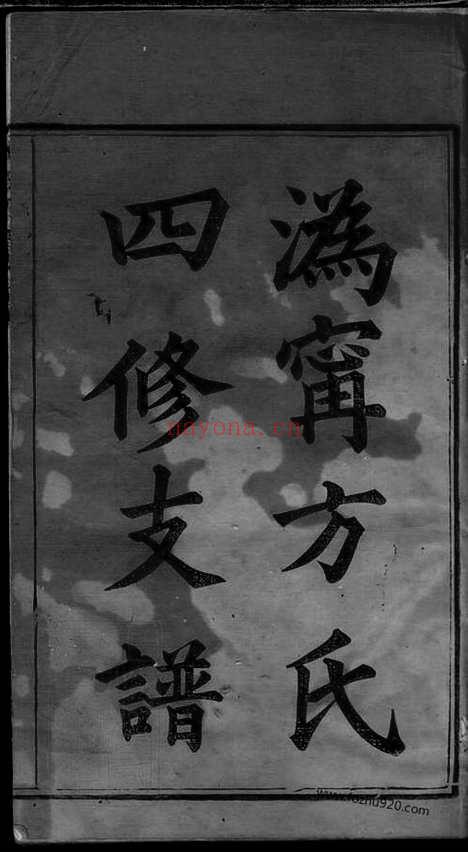 溈甯方氏
四修支譜
nayona.cn
www.fozhu920.com